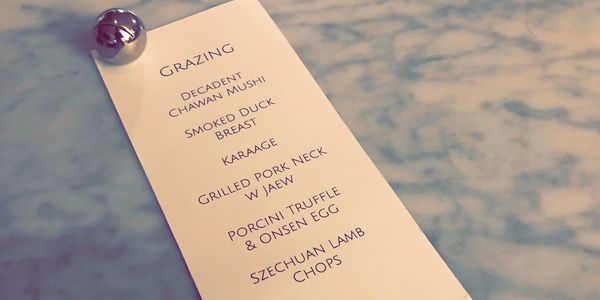 GRAZING
DECADENT
CHAWAN MUSHI
SMOKED DUCK
BREAST
KARAAGE
GRILLED PORK NECK
W JAEW
PORCINI TRUFFLE
& ONSEN EGG
SZECHUAN LAMB
CHOPS